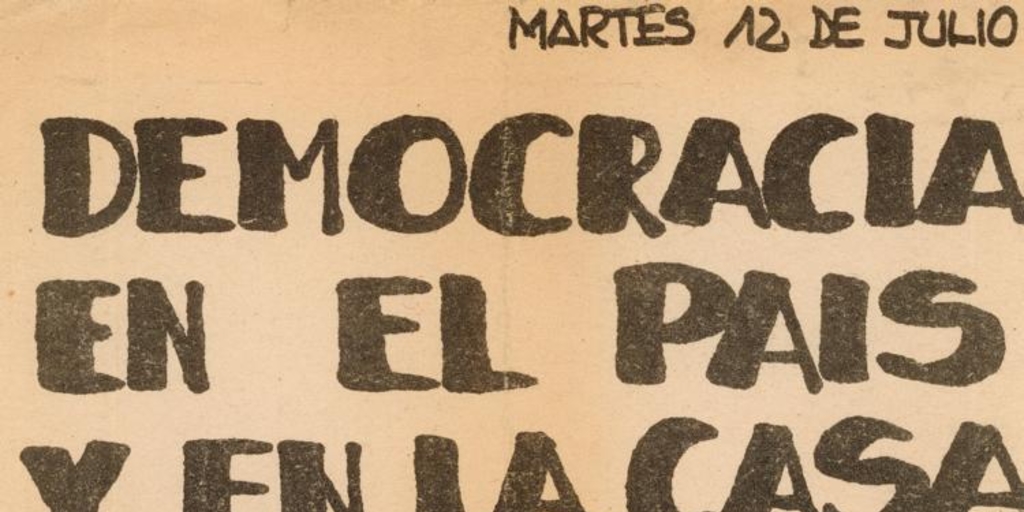 MARTES 12 DE JULIO
DEMOCRACIA
EN EL PAIS
Y EN LA CASA